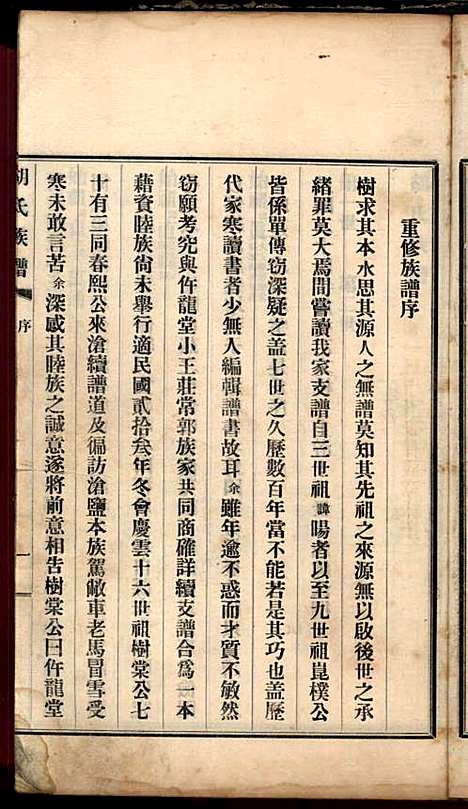 重修族譜序
樹求其本水思其源人之無譜莫知其先祖之來源無以啟後世之承
緒罪莫大焉間嘗讀我家支譜自三世祖諱暘者以至九世祖崑樸公
皆係單傳窃深疑之盖七世之久歷數百年當不能若是其巧也盖歷
代家寒讀書者少無人編輯譜書故耳余雖年逾不惑而才質不敏然
窃願考究與仵龍堂小王莊常郭族家共同商確詳續支譜合爲一本
藉資睦族尙未舉行適民國貳拾叁年冬會慶雲十六世祖樹棠公七
十有三同春熙公來滄續譜道及徧訪滄鹽本族駕敝車老馬冒雪受
寒未敢言苦余深感其睦族之誠意遂將前意相告樹棠公曰仵龍堂
胡氏族譜
序
一